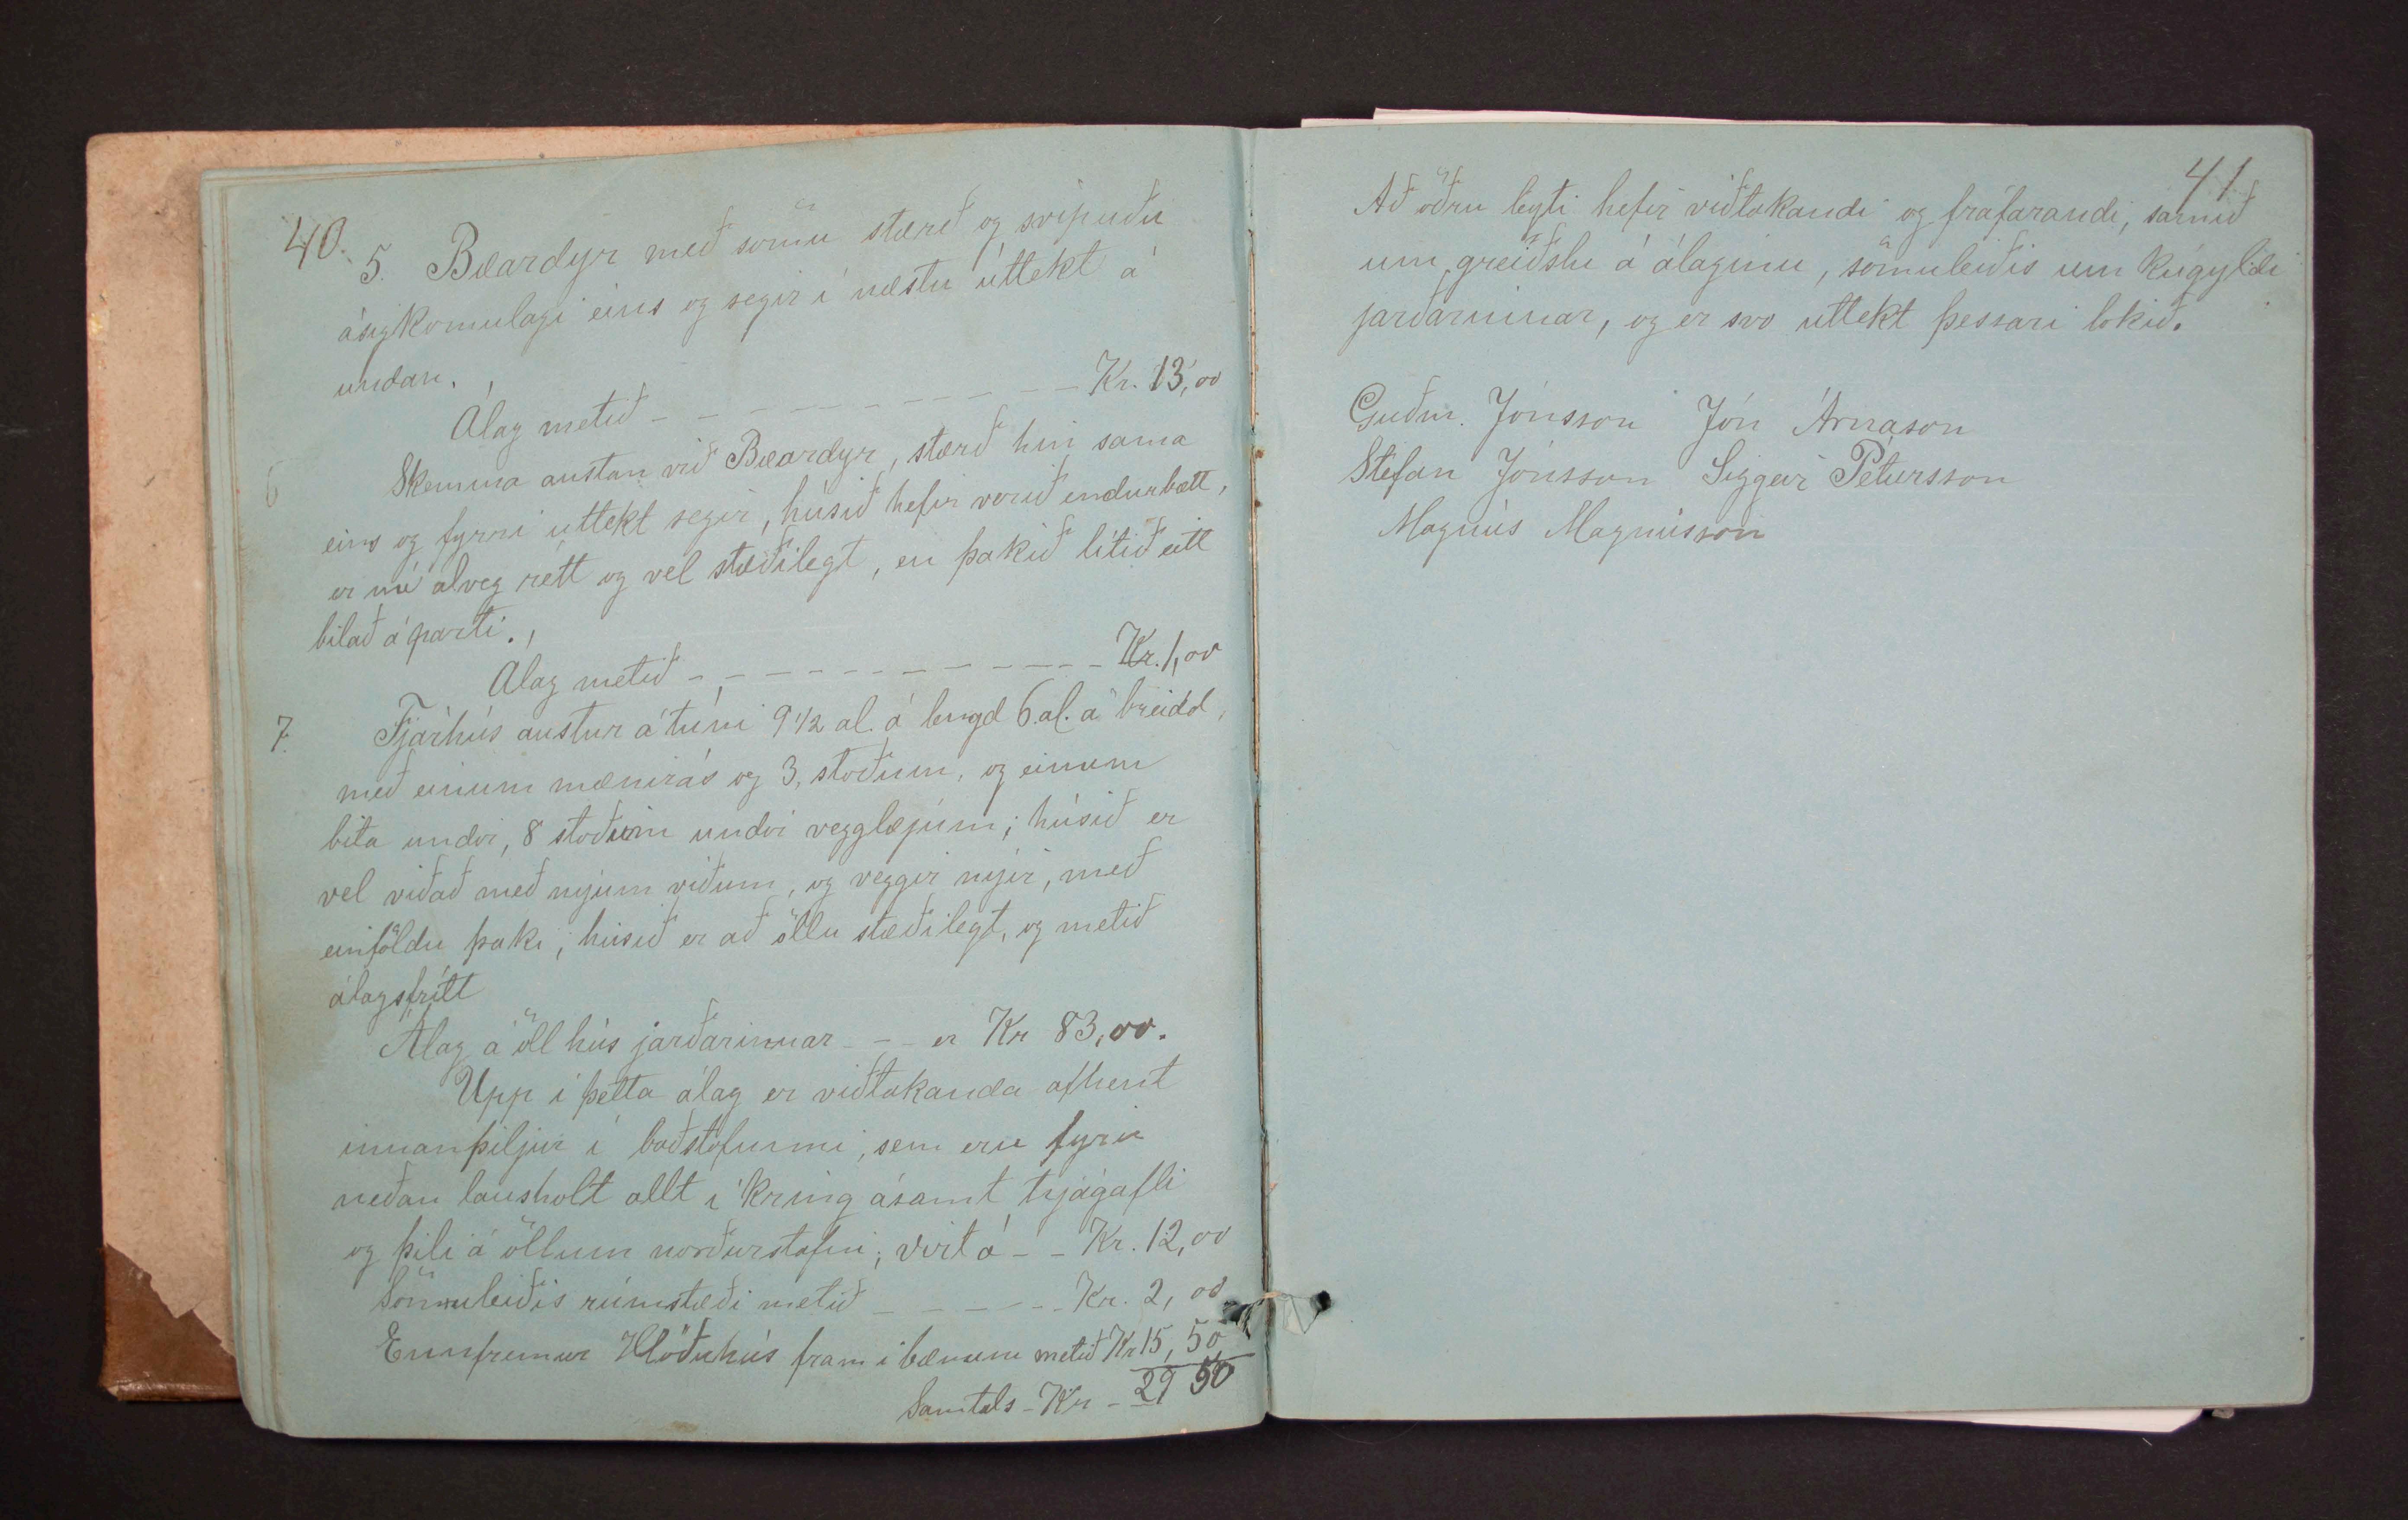 40.
5. Bæardyr með sömu stærð og svipuðu
ásigkomulagi eins og segir í næstu úttekt á
undan.
Álag metið - - - - - - - - - - Kr. 13,00
6 Skemma austan við Bæardyr, stærð hin sama
eins og fyrri úttekt segir, húsið hefir verið endurbætt,
er nú alveg rétt og vel stæðilegt, en þakið lítið eitt
bilað á parti.,
Alag metið - - - - - - - - - - - Kr. 1,00
7. Fjárhús austur á túni 9 1/2 al. á lengd 6. al. á breidd,
með einum mænirás og 3, stoðum, og einum
bita undir, 8 stoðum undir vegglægjum; húsið er
vel viðað með nýjum viðum, og veggir nýir, með
einföldu þaki; húsið er að öllu stæðilegt, og metið
álagsfrítt
Álag á öll hús jarðarinnar - - - er Kr 83,00.
Upp í þetta álag er viðtakanda afhent
innanþiljur í baðstofunni, sem eru fyrir
neðan lausholt allt í kring ásamt trjágafli
og þili á öllum norðurstafni; virt á - - Kr. 12,00
Sömuleiðis rúmstæði metið - - - - - - Kr. 2,00
Ennfremur Hlóðuhús fram í bænum metið Kr 15,50
Samtals - Kr - 29 50
41
Að öðru leyti hefir viðtakandi og fráfarandi, samið
um greiðslu á álaginu, sömuleiðis um kúgyldi
jarðarninar, og er svo uttekt þessari lokið.
Guðm. Jónsson Jón Árnason
Stefan Jónsson Siggeir Pétursson
Magnús Magnússon